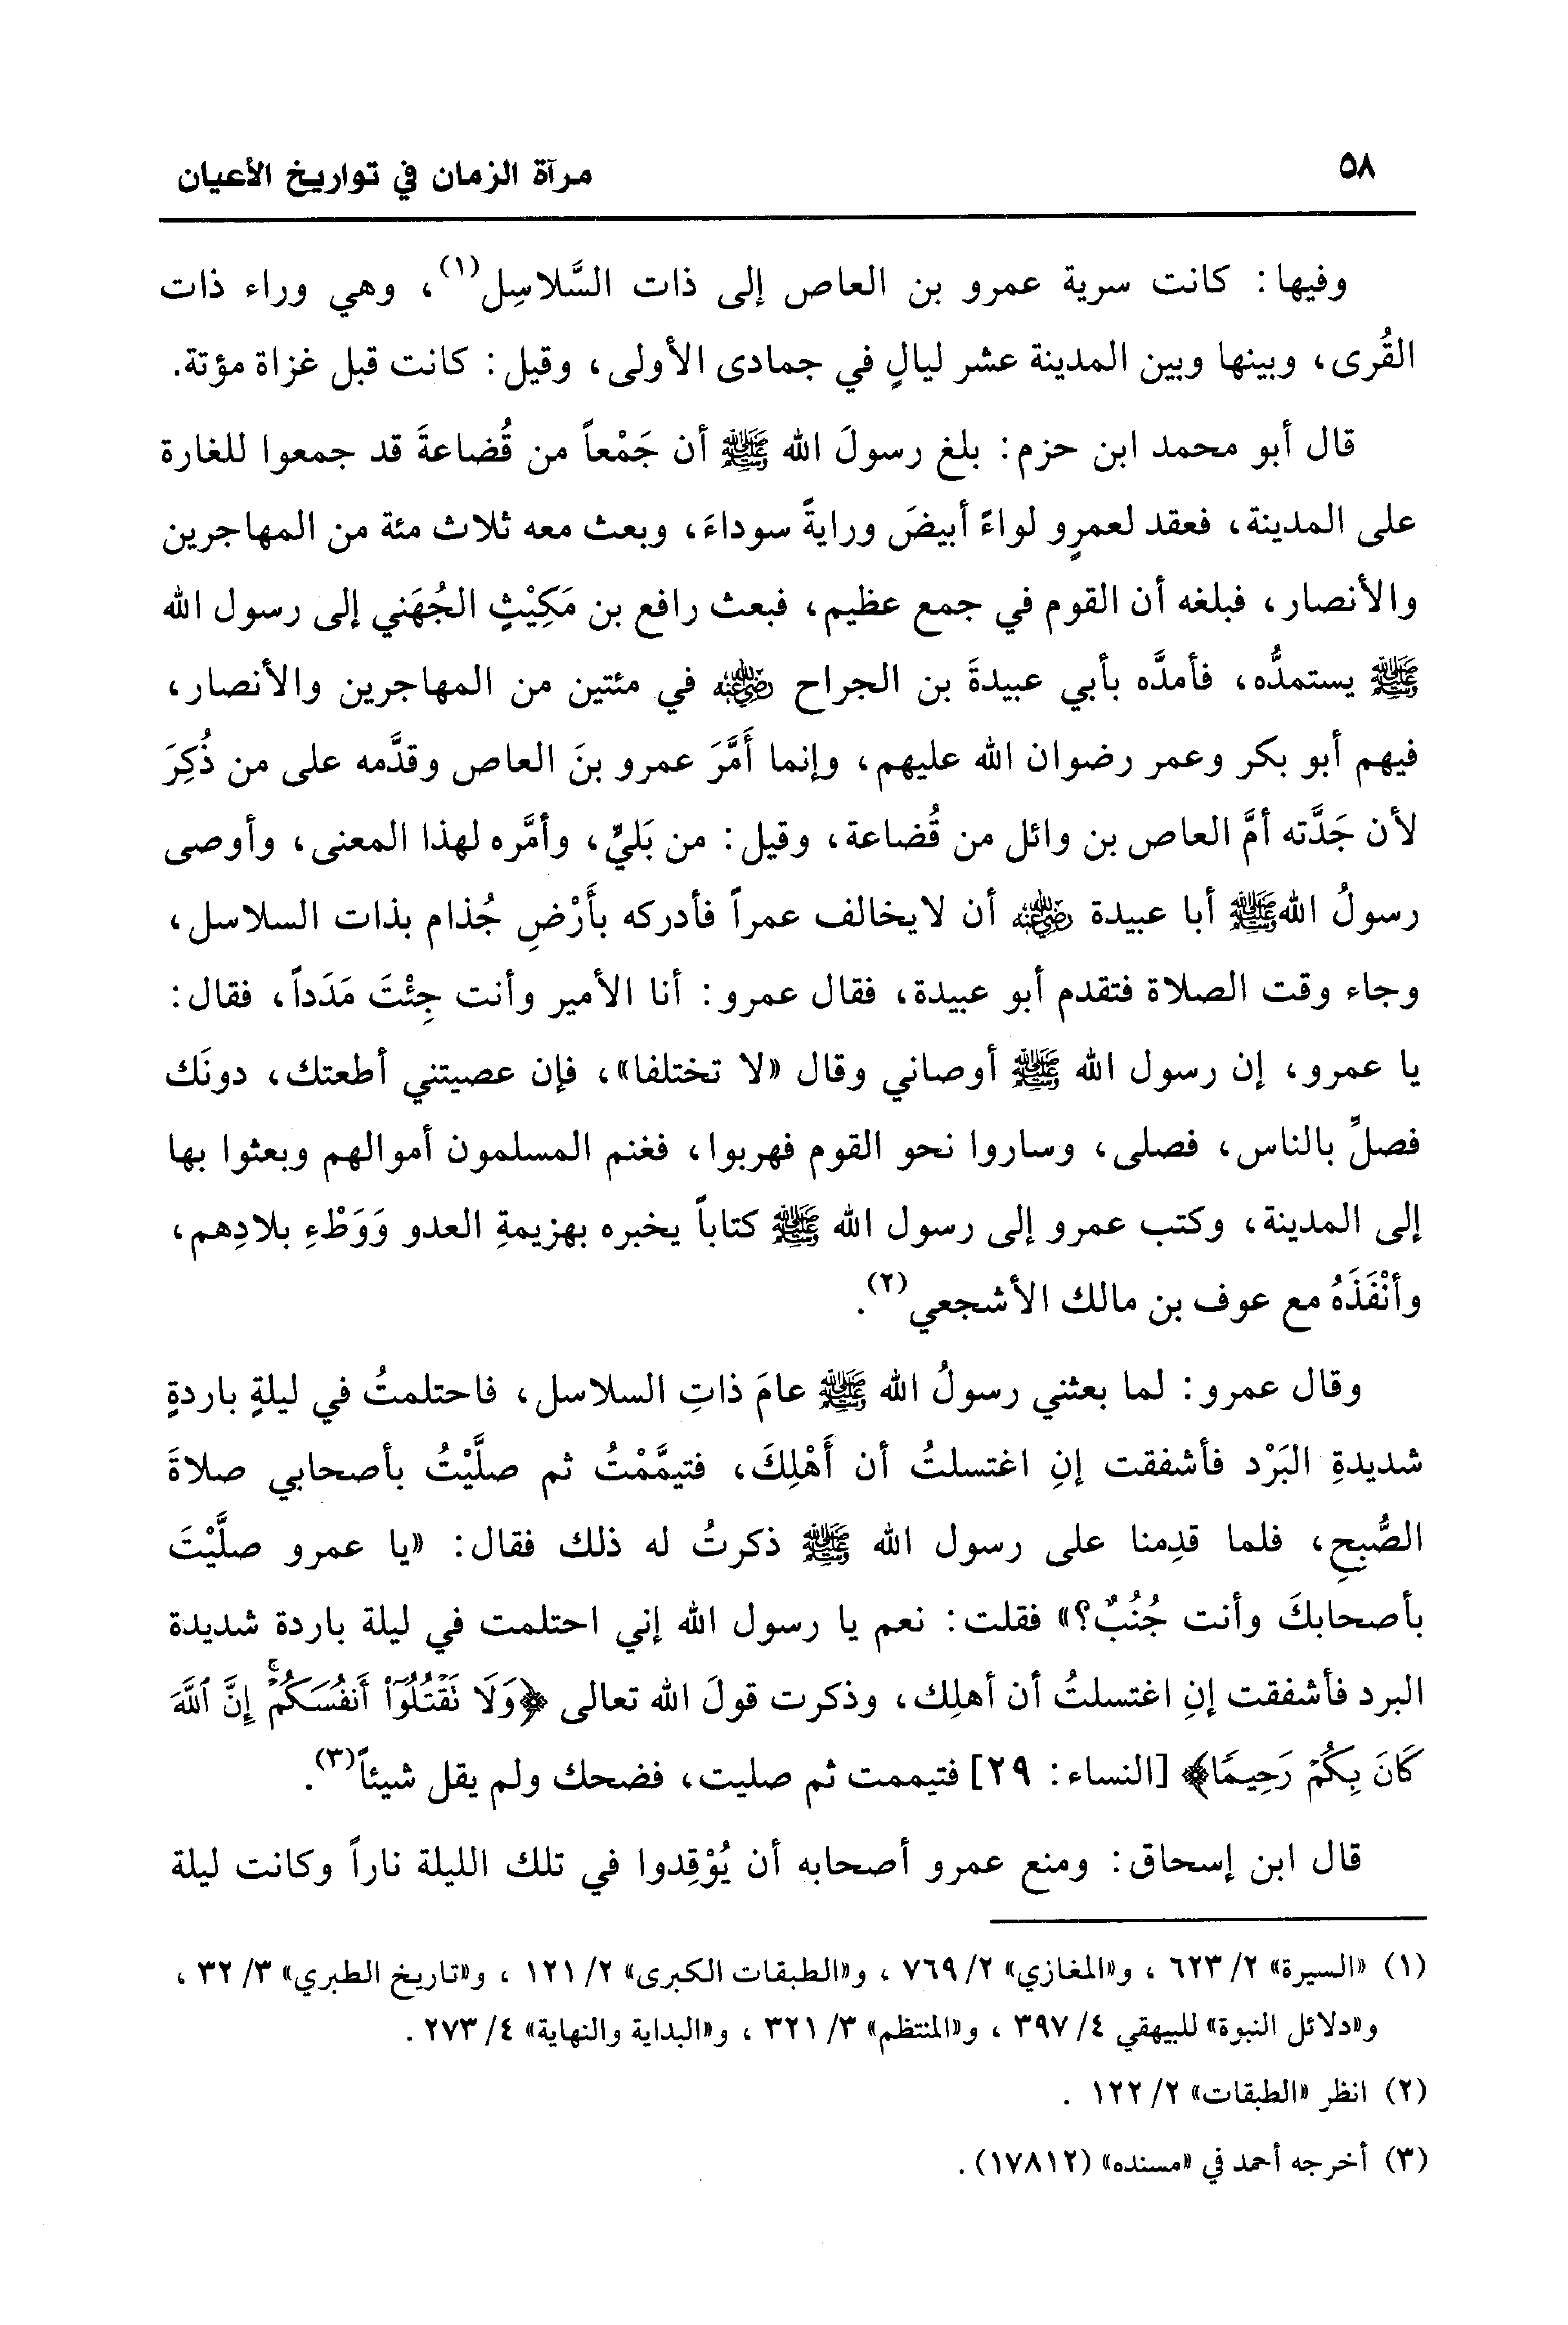 ٥٨ مرآة الزمان في تواريخ الأعيان
وفيها: كانت سرية عمرو بن العاص إلى ذات السَّلاسِل(١)، وهي وراء ذات
القُرى، وبينها وبين المدينة عشر ليالٍ في جمادى الأولى، وقيل: كانت قبل غزاة مؤتة.
قال أبو محمد ابن حزم: بلغ رسولَ الله ﷺ أن جَمْعاً من قُضاعةَ قد جمعوا للغارة
على المدينة، فعقد لعمرٍو لواءً أبيضَ ورايةً سوداءَ، وبعث معه ثلاث مئة من المهاجرين
والأنصار، فبلغه أن القوم في جمع عظيم، فبعث رافع بن مَكِيْثٍ الجُهَني إلى رسول الله
ﷺ يستمدُّه، فأمدَّه بأبي عبيدةَ بن الجراح رضي الله عنه في مئتين من المهاجرين والأنصار،
فيهم أبو بكر وعمر رضوان الله عليهم، وإنما أَمَّرَ عمرو بنَ العاص وقدَّمه على من ذُكِرَ
لأن جَدَّته أمَّ العاص بن وائل من قُضاعة، وقيل: من بَليٍّ، وأمَّره لهذا المعنى، وأوصى
رسولُ الله ﷺ أبا عبيدة رضي الله عنه أن لا يخالف عمراً فأدركه بأَرْضِ جُذام بذات السلاسل،
وجاء وقت الصلاة فتقدم أبو عبيدة، فقال عمرو: أنا الأمير وأنت جِئْتَ مَدَداً، فقال:
يا عمرو، إن رسول الله ﷺ أوصاني وقال «لا تختلفا»، فإن عصيتني أطعتك، دونَك
فصلِّ بالناس، فصلى، وساروا نحو القوم فهربوا، فغنم المسلمون أموالهم وبعثوا بها
إلى المدينة، وكتب عمرو إلى رسول الله ﷺ كتاباً يخبره بهزيمةِ العدو وَوَطْءِ بلادِهم،
وأنْفَذَهُ مع عوف بن مالك الأشجعي(٢).
وقال عمرو: لما بعثني رسولُ الله ﷺ عامَ ذاتِ السلاسل، فاحتلمتُ في ليلةٍ باردةٍ
شديدةِ البَرْد فأشفقت إنِ اغتسلتُ أن أَهْلِكَ، فتيمَّمْتُ ثم صلَّيْتُ بأصحابي صلاةَ
الصُّبحِ، فلما قدِمنا على رسول الله ﷺ ذكرتُ له ذلك فقال: «يا عمرو صلَّيْتَ
بأصحابكَ وأنت جُنُبٌ؟» فقلت: نعم يا رسول الله إني احتلمت في ليلة باردة شديدة
البرد فأشفقت إنِ اغتسلتُ أن أهلِك، وذكرت قولَ الله تعالى ﴿وَلَا نَقْتُلُوٓا۟ أَنفُسَكُمْ ۚ إِنَّ ٱللَّهَ
كَانَ بِكُمْ رَحِيمًا﴾ [النساء: ٢٩] فتيممت ثم صليت، فضحك ولم يقل شيئاً(٣).
قال ابن إسحاق: ومنع عمرو أصحابه أن يُوْقِدوا في تلك الليلة ناراً وكانت ليلة
(١) «السيرة» ٢/ ٦٢٣، و«المغازي» ٢/ ٧٦٩، و«الطبقات الكبرى» ٢/ ١٢١، و«تاريخ الطبري» ٣/ ٣٢،
و«دلائل النبوة» للبيهقي ٤/ ٣٩٧، و«المنتظم» ٣/ ٣٢١، و«البداية والنهاية» ٤/ ٢٧٣.
(٢) انظر «الطبقات» ٢/ ١٢٢.
(٣) أخرجه أحمد في «مسنده» (١٧٨١٢).